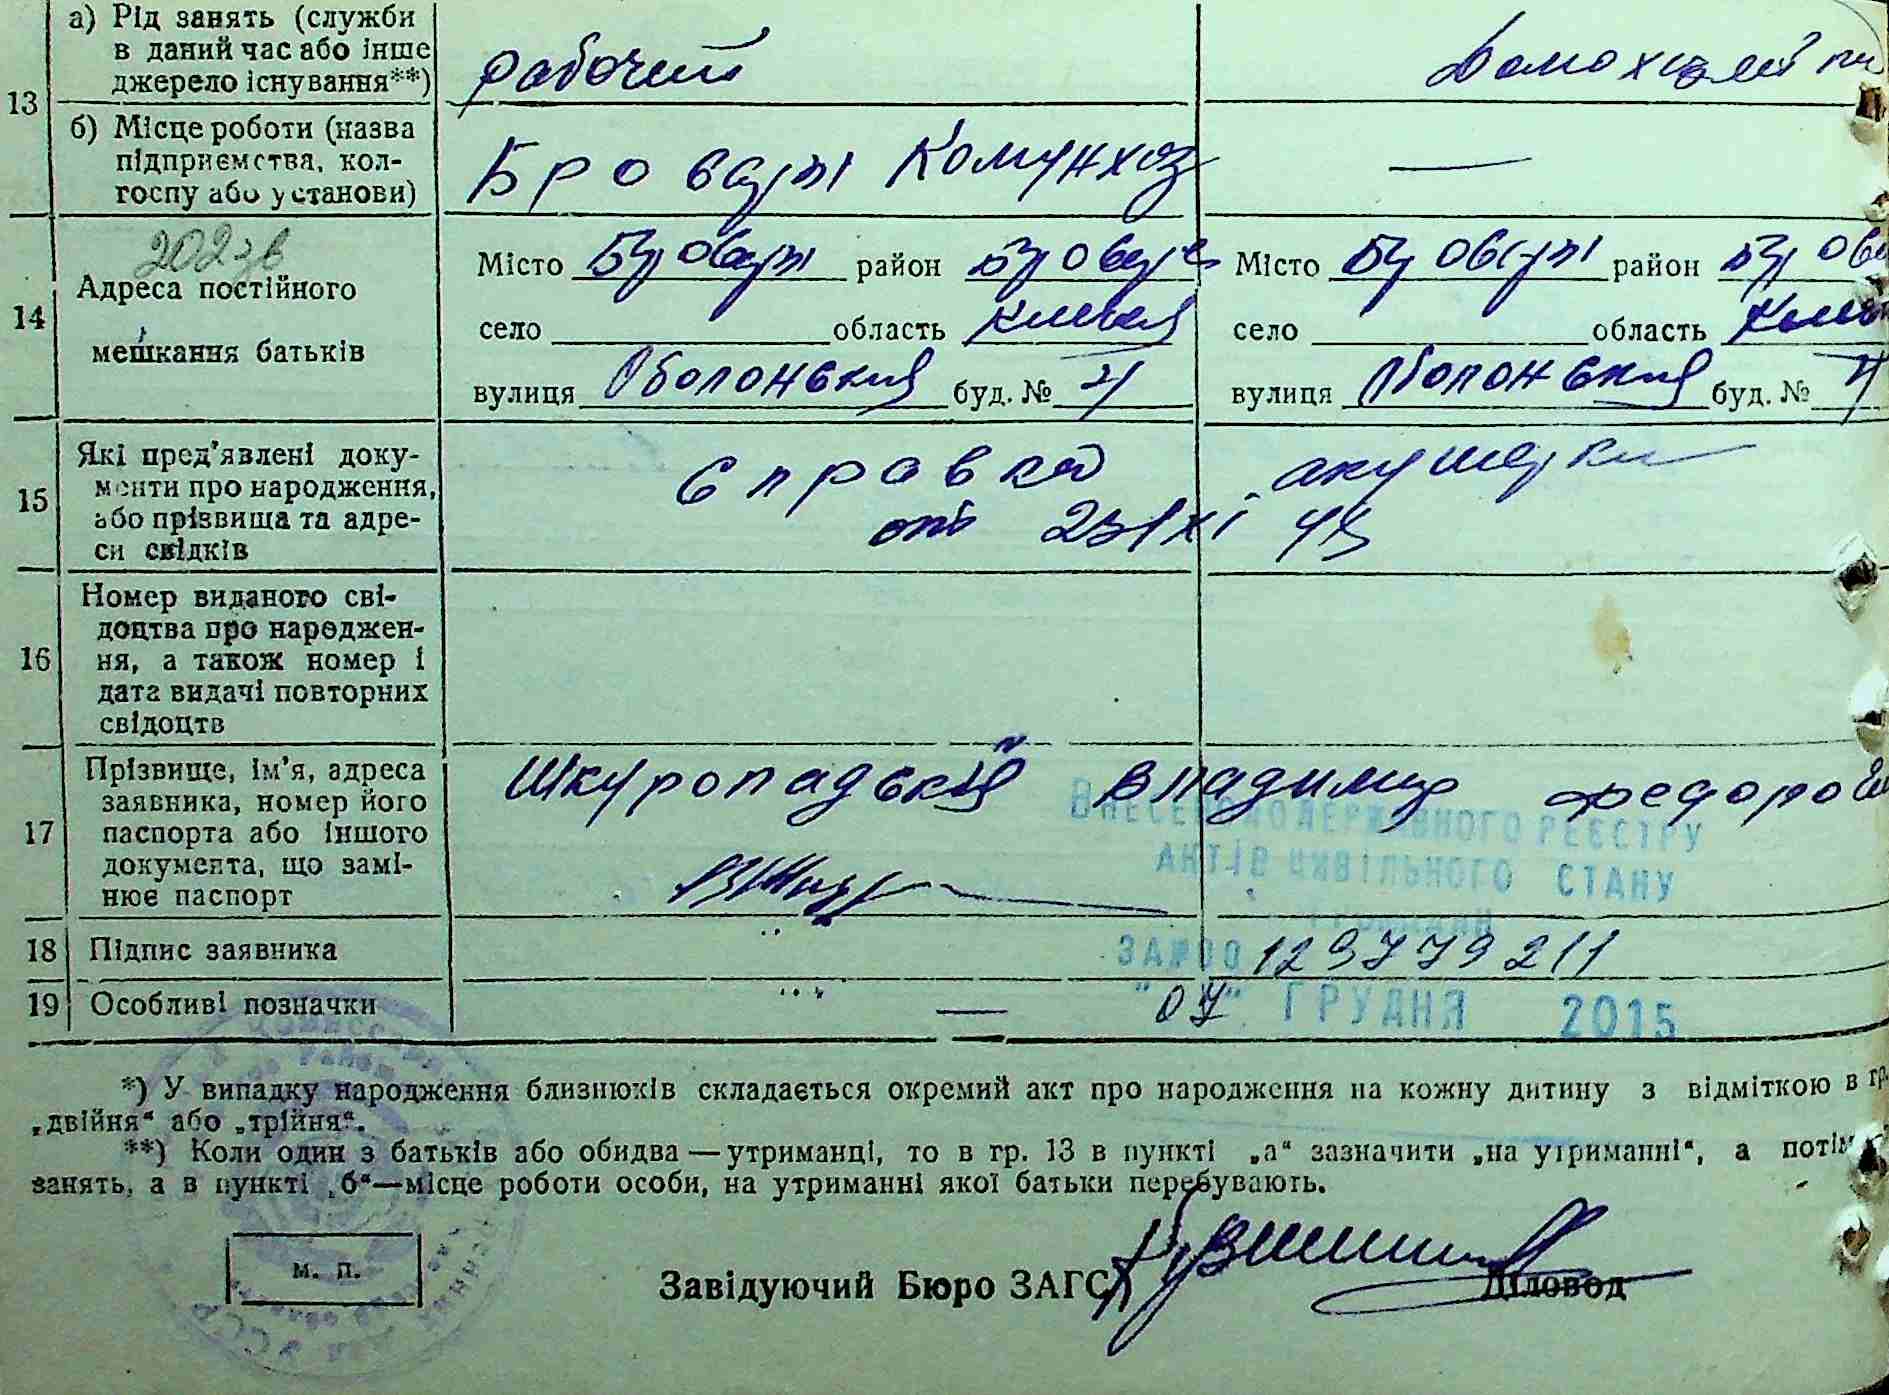 13
а) Рід занять (служби
в даний час або інше
джерело існування**)
рабочий
б) Місце роботи (назва
підприємства, кол-
госпу або установи)
Бровари Комунхоз
—
14
Адреса постійного
мешкання батьків
Місто Бровари район
село область
вулиця Оболонская буд. № 4
Місто Бровари район
село область
вулиця Оболонская буд. № 4
15
Які пред'явлені доку-
менти про народження,
або прізвища та адре-
си свідків
Справка акушерки
от
16
Номер виданого сві-
доцтва про народжен-
ня, а також номер і
дата видачі повторних
свідоцтв
17
Прізвище, ім'я, адреса
заявника, номер його
паспорта або іншого
документа, що замі-
нює паспорт
Шкуропадский Владимир
ВНЕСЕНО ДО ДЕРЖАВНОГО РЕЄСТРУ
АКТІВ ЦИВІЛЬНОГО СТАНУ
ГРОМАДЯН
18 Підпис заявника
ЗА №00 129779211
19 Особливі позначки
—
"07" ГРУДНЯ 2015
*) У випадку народження близнюків складається окремий акт про народження на кожну дитину з відміткою в гр.
„двійня“ або „трійня“.
**) Коли один з батьків або обидва — утриманці, то в гр. 13 в пункті „а“ зазначити „на утриманні“, а потім
занять, а в пункті „б“—місце роботи особи, на утриманні якої батьки перебувають.
м. п.
Завідуючий Бюро ЗАГС
Діловод